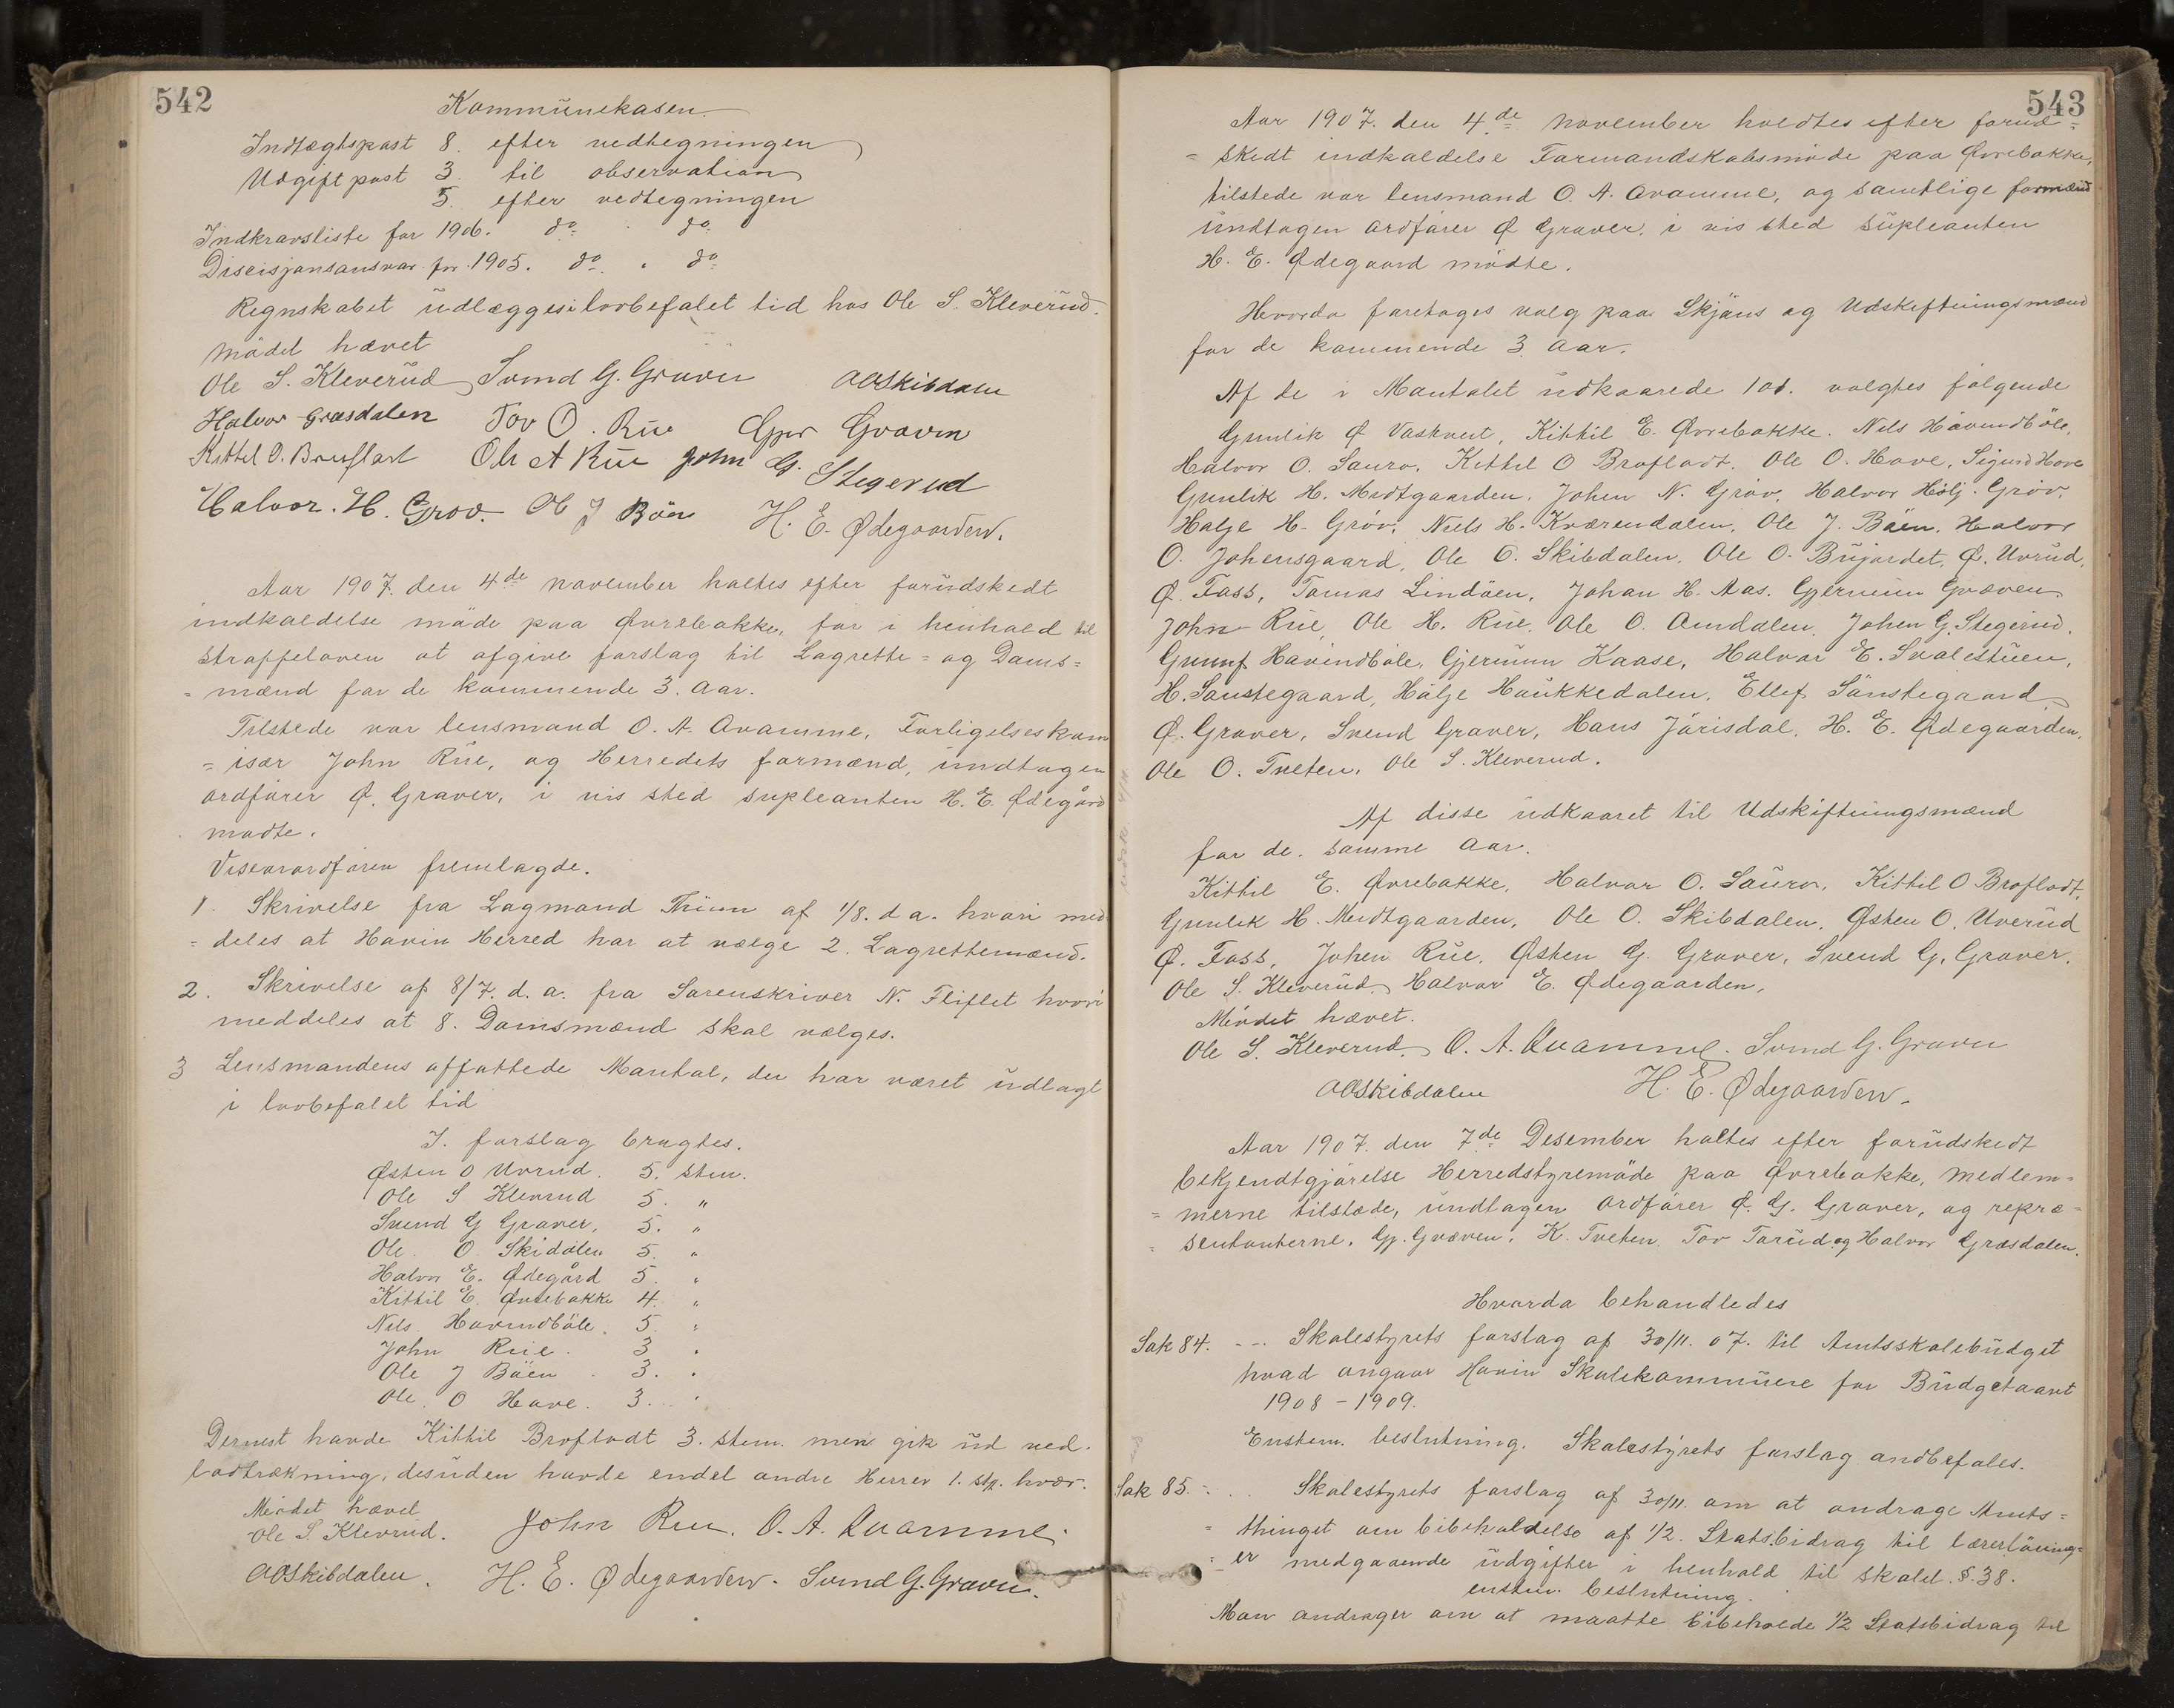 542
Kommünekasen
Indtægtspost 8. efter vedtegningen
Udgiftpost 3. til observation
5. efter vedtegningen
Indkravsliste for 1906. do do
Discisjonsansvar for 1905. do " do
Regnskabet üdlægges i lovbefalet tid hos Ole S. Kleverüd.
Mødet hævet
Ole S. Kleverüd Svend G. Graver OOSkibdalen
Halvor Græsdalen Tov O. Rüe Gjer Graven
Kittel O. Brufladt Ole A Rüe John G. Stegerud
Halvor. H. Grov. Ole J Böen H. E. Ødegaarden.
Aar 1907. den 4de november holtes efter forüdskedt
indkaldelse møde paa Øvrebakke, for i henhold til
straffeloven at afgive forslag til Lagrette- og Doms=
=mænd for de kommende 3. aar.
Tilstede var lensmand O. A. Qvamme, Forligelseskom
=især John Rüe, og Herredets formænd, ündtagen
ordfører Ø. Graver, i vis sted supleanten H. E. Ødegård
mødte.
Viseordføren fremlagde.
1. Skrivelse fra Lagmand Thüne af 1/8. d a. hvori med
=deles at Hovin Herred har at vælge 2. Lagrettemænd.
2. Skrivelse af 8/7. d. a. fra Sorenskriver N. Fliflet hvori
meddeles at 8. Domsmænd skal vælges.
3 Lensmandens affattede Mantal, der har været üdlagt
i lovbefalet tid
I. forslag bragtes.
Østen O Uvrud. 5. stem.
Ole S Klevrud 5. "
Svend G Graver, 5. "
Ole. O. Skidalen 5. "
Halvor E. Ødegård 5. "
Kittil E. Øvrebakke 4. "
Nils Havindböle. 5. "
John Rüe. 3 "
Ole J Böen. 3. "
Ole. O Hove. 3. "
Dernest havde Kittil Brofladt 3. stem. men gik üd ved.
lodtrækning, desüden havde endel andre Herrer 1. st. hvær.
Mødet hævet
Ole S Klevrüd. John Rue. O. A. Quamme.
OOSkibdalen. H. E. Ødegaarden. Svend G. Graver.
543
Aar 1907. den 4.de november holdtes efter forüd=
=skedt indkaldelse Formandskabsmøde paa Øvrebakke,
tilstede var lensmand O. A. Qvamme, og samtlige formænd
ündtagen ordfører Ø Graver. i vis sted süpleanten
H. E. Ødegaard mødte.
Hvorda foretoges valg paa Skjöns og Udskiftningsmænd
for de kommende 3. aar.
Af de i Mantalet üdkaarede 101. valgtes følgende
Gunlik Ø Vaskveit, Kittil E. Øvrebakke. Nils Håvindböle,
Halvor O. Sauro, Kittil O Brofladt, Ole O. Hove, Sigurd Hove
Gunlik H. Midtgaarden. Johen N. Gröv, Halvor Hölj. Gröv,
Holje H. Gröv. Niels H. Kværendalen, Ole J. Böen. Halvor
O. Johensgaard, Ole O. Skibdalen, Ole O. Büjordet, Ø. Uvrüd,
Ø. Foss, Tomas Lindöen, Johan H. Aas. Gjermün Græven
John Rüe, Ole H. Rüe. Ole O. Omdalen. Johen G. Stegerüd.
Gunnf. Havindböle, Gjermünn Kaase, Halvor E. Svalestüen,
H. Sønstegaard, Hålje Haükkedalen, Ellef Sönstegaard
Ø. Graver, Svend Graver, Hans Jörisdal, H. E. Ødegaarden,
Ole O. Tveten. Ole S. Kleverud.
Af disse üdkaaret til Udskiftningsmænd
for de. samme aar.
Kittil E. Øvrebakke, Halvor O. Saüro, Kittil O Brofladt,
Gunlik H. Midtgaarden, Ole O. Skibdalen. Østen O. Uverüd
Ø. Foss, Johen Rüe. Østen G. Graver, Svend G. Graver.
Ole S. Kleverüd. Halvor E. Ødegaarden,
Mødet hævet.
Ole S. Kleverud. O. A. Quamme. Svend G. Graver
OOSkibdalen H. E. Ødegaarden.
Aar 1907. den 7.de Desember holtes efter forüdskedt
bekjendtgjørelse Herredstyremöde paa Øvrebakke, medlem=
=merne tilstede, ündtagen ordfører Ø. G. Graver, og repræ=
=sentanterne. Gj. Græven, K. Tveten. Tov Torüd og Halvor Græsdalen.
Hvorda behandledes
Sak 84. --- Skolestyrets forslag af 30/11. 07. til Amtsskolebüdget
hvad angaar Hovin Skolekommüne for Büdgetaaret
1908 - 1909.
Enstem. beslutning. Skolestyrets forslag andbefales.
Sak 85. -... Skolestyrets forslag af 30/11. om at andrage Amts=
=thinget om bibeholdelse af 1/2. Statsbidrag til lærerlöning=
=er medgaaende üdgifter i henhold til skolel. §. 38.
enstm. beslutning.
Man andrager om at maatte bibeholde 1/2 Statsbidrag til